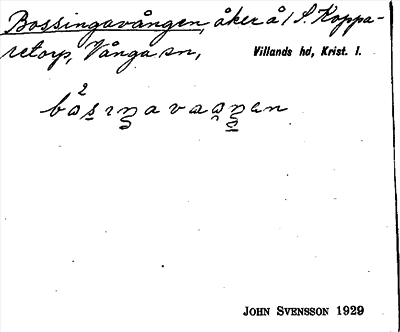 Bossingavången, åker å 1 S. Koppa-
retorp, Vånga sn, Villands hd, Krist. l.
John Svensson 1929